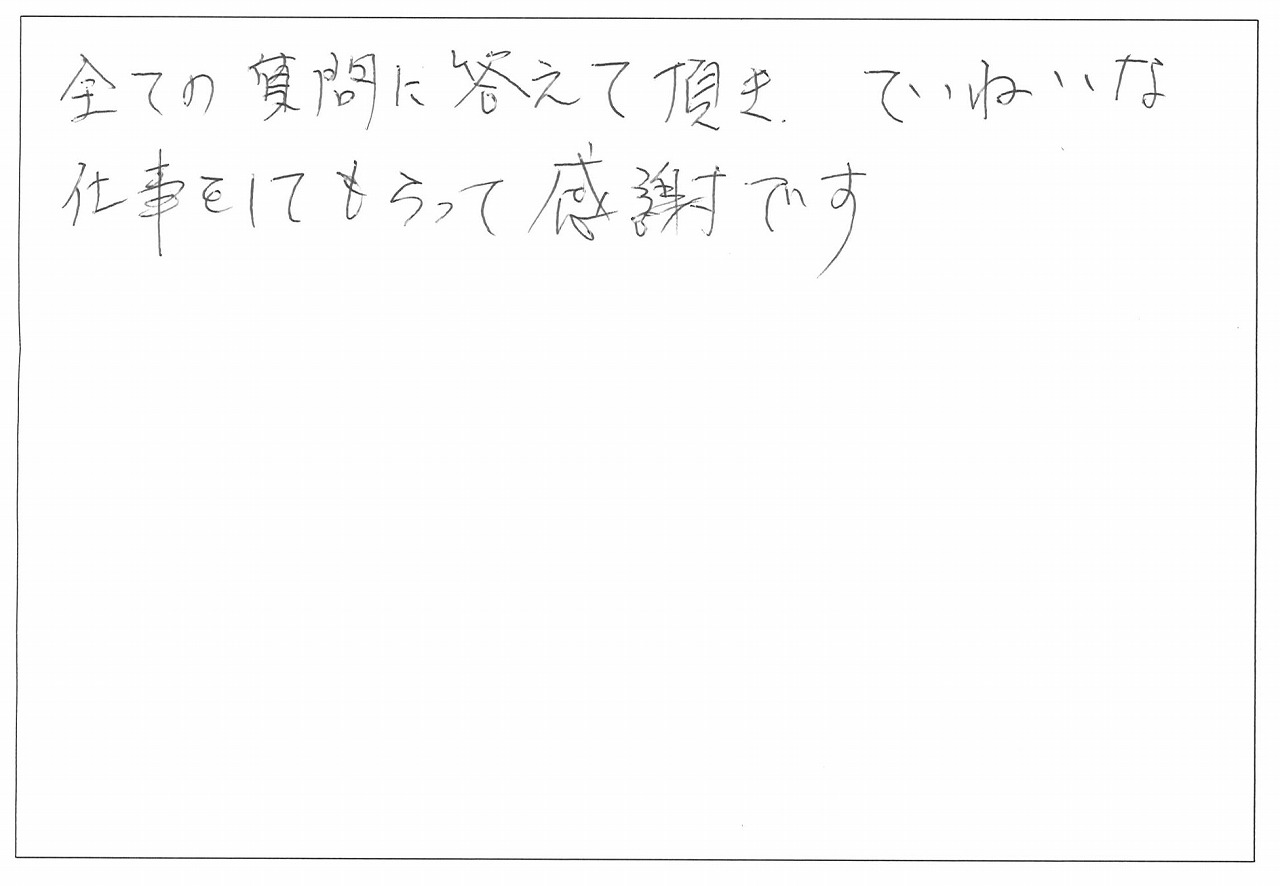 全ての質問に答えて頂き ていねいな
仕事をしてもらって感謝です